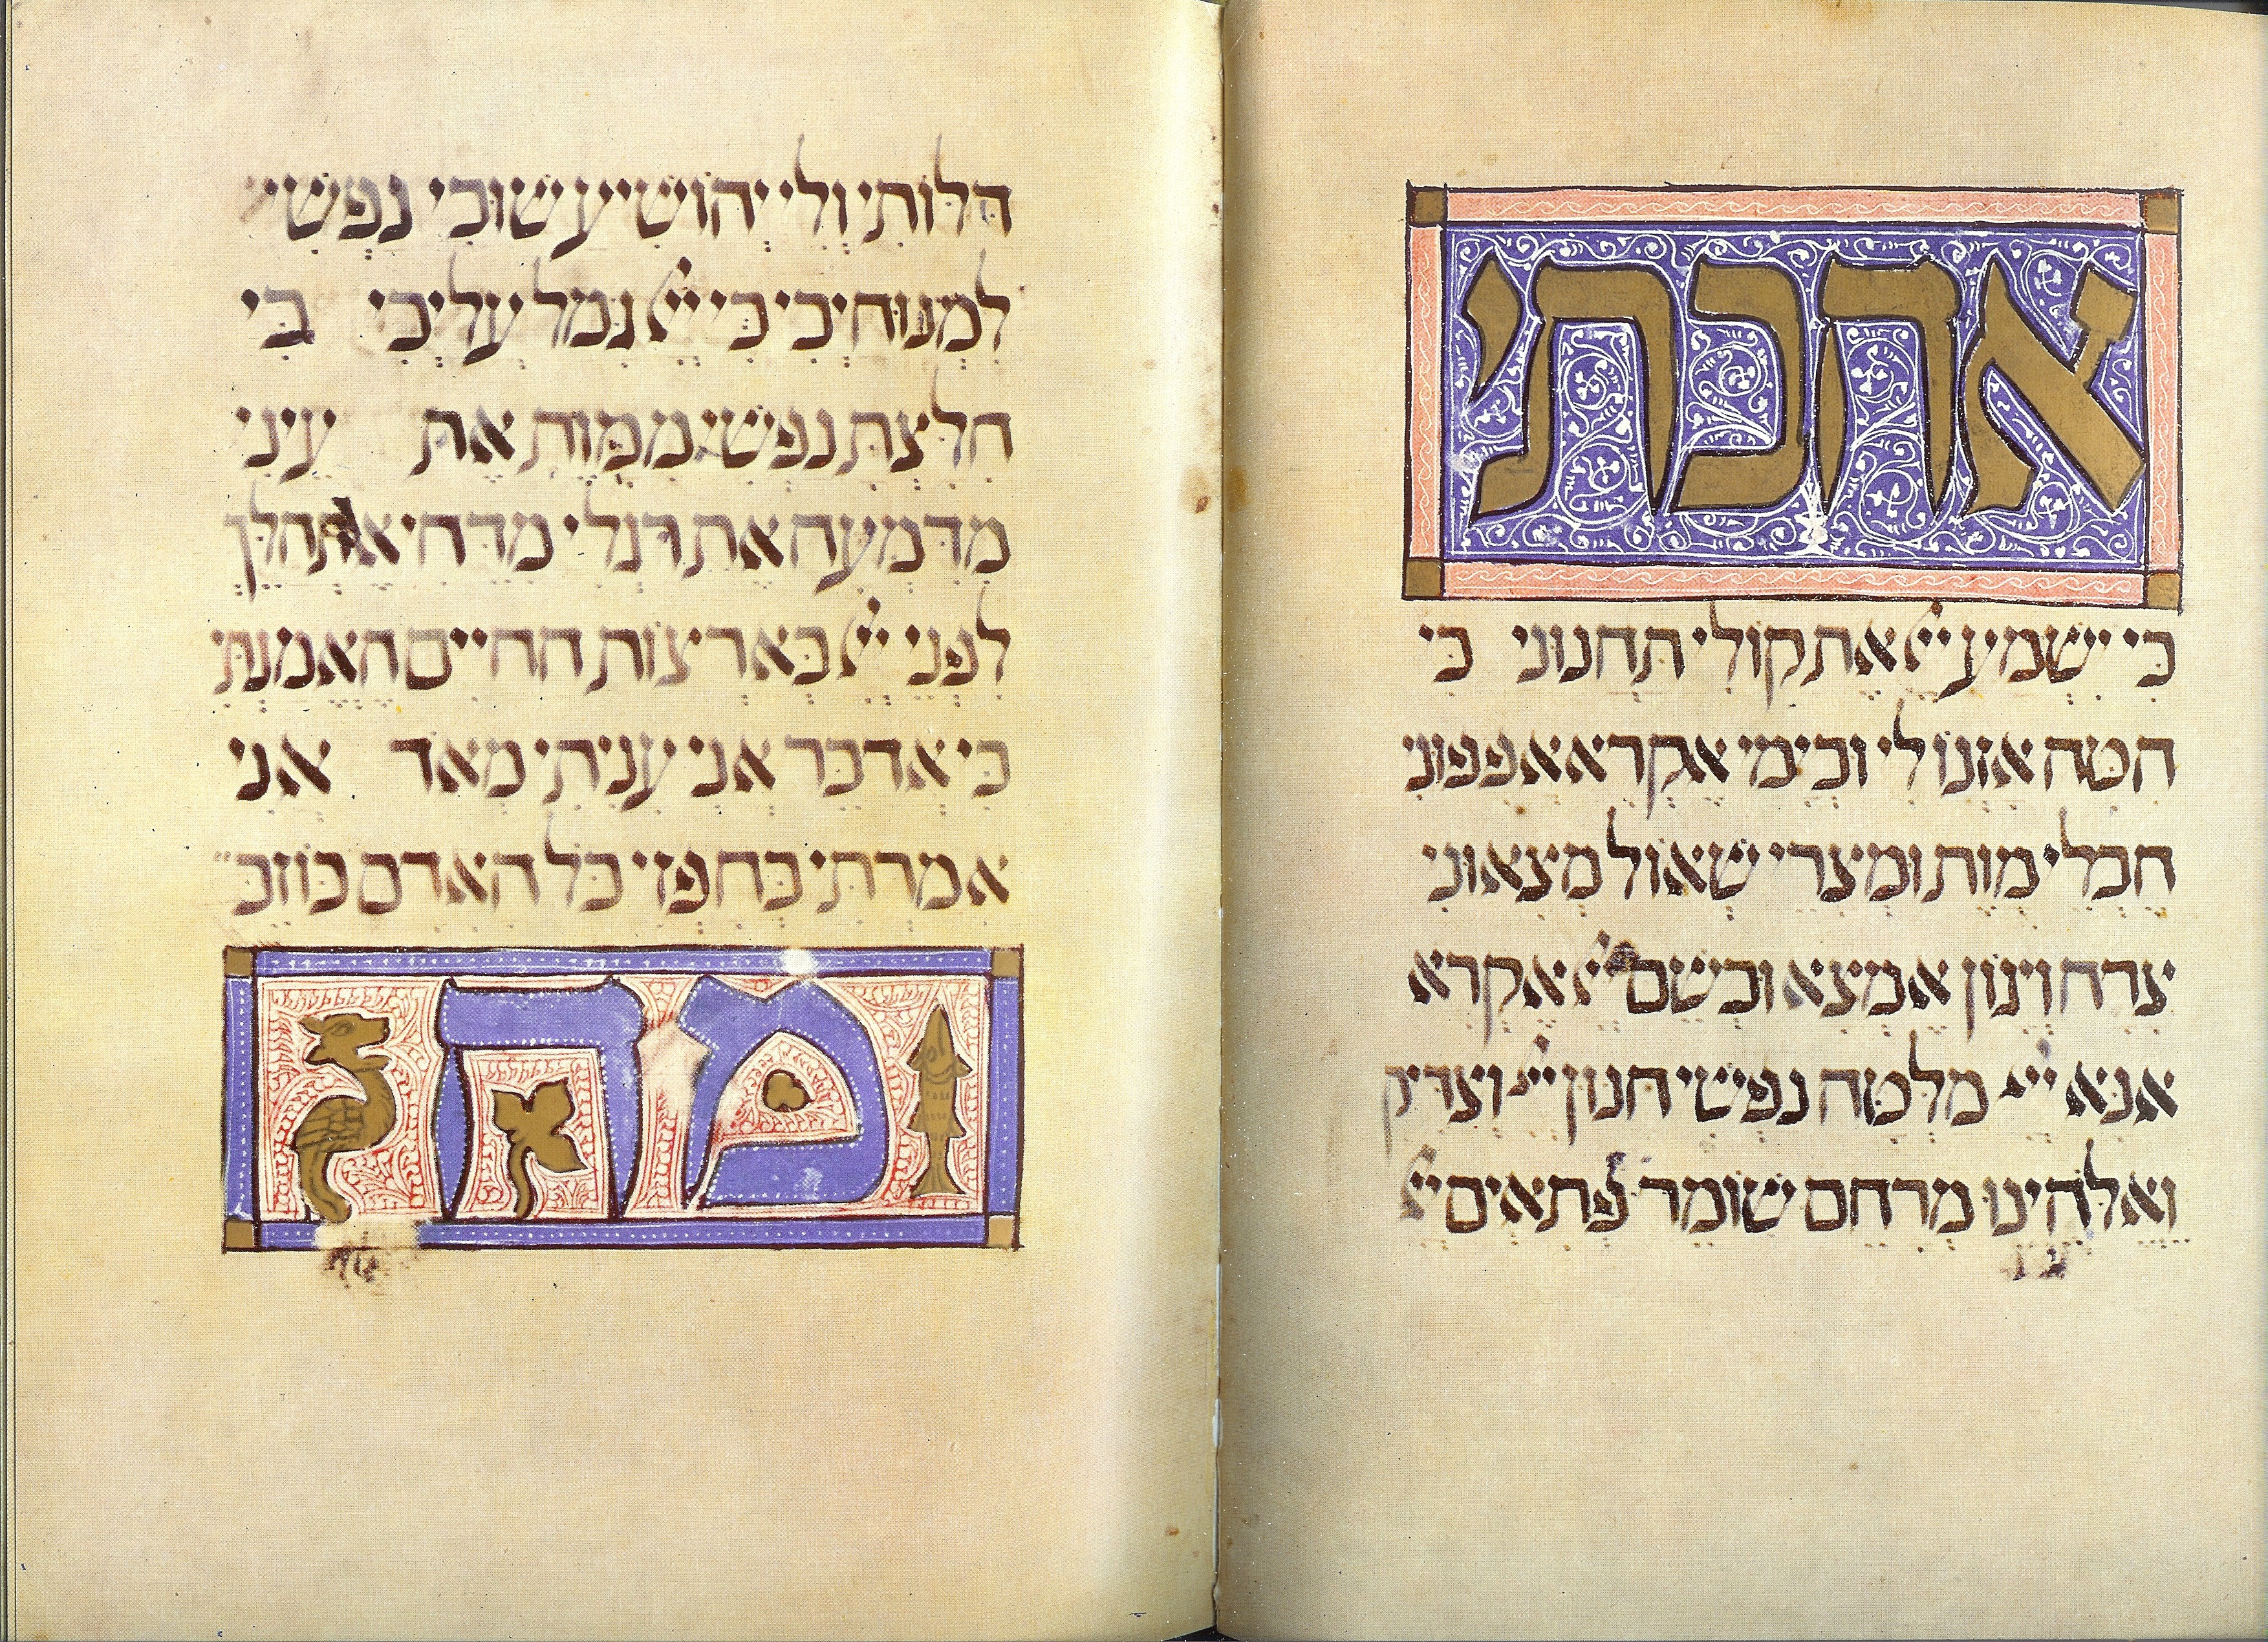 אהבתי
כִּי יִשְׁמַע יְיָ אֶת קוֹלִי תַּחֲנוּנָי כִּי
הִטָּה אָזְנוֹ לִי וּבְיָמַי אֶקְרָא אֲפָפוּנִי
חֶבְלֵי מָוֶת וּמְצָרֵי שְׁאוֹל מְצָאוּנִי
צָרָה וְיָגוֹן אֶמְצָא וּבְשֵׁם יְיָ אֶקְרָא
אָנָּא יְיָ מַלְּטָה נַפְשִׁי חַנּוּן יְיָ וְצַדִּיק
וֵאלֹהֵינוּ מְרַחֵם שׁוֹמֵר פְּתָאִים יְיָ
דַּלּוֹתִי וְלִי יְהוֹשִׁיעַ שׁוּבִי נַפְשִׁי
לִמְנוּחָיְכִי כִּי יְיָ גָּמַל עָלָיְכִי כִּי
חִלַּצְתָּ נַפְשִׁי מִמָּוֶת אֶת עֵינִי
מִדִּמְעָה אֶת רַגְלִי מִדֶּחִי אֶתְהַלֵּךְ
לִפְנֵי יְיָ בְּאַרְצוֹת הַחַיִּים הֶאֱמַנְתִּי
כִּי אֲדַבֵּר אֲנִי עָנִיתִי מְאֹד אֲנִי
אָמַרְתִּי בְחָפְזִי כָּל הָאָדָם כּוֹזֵב
מה